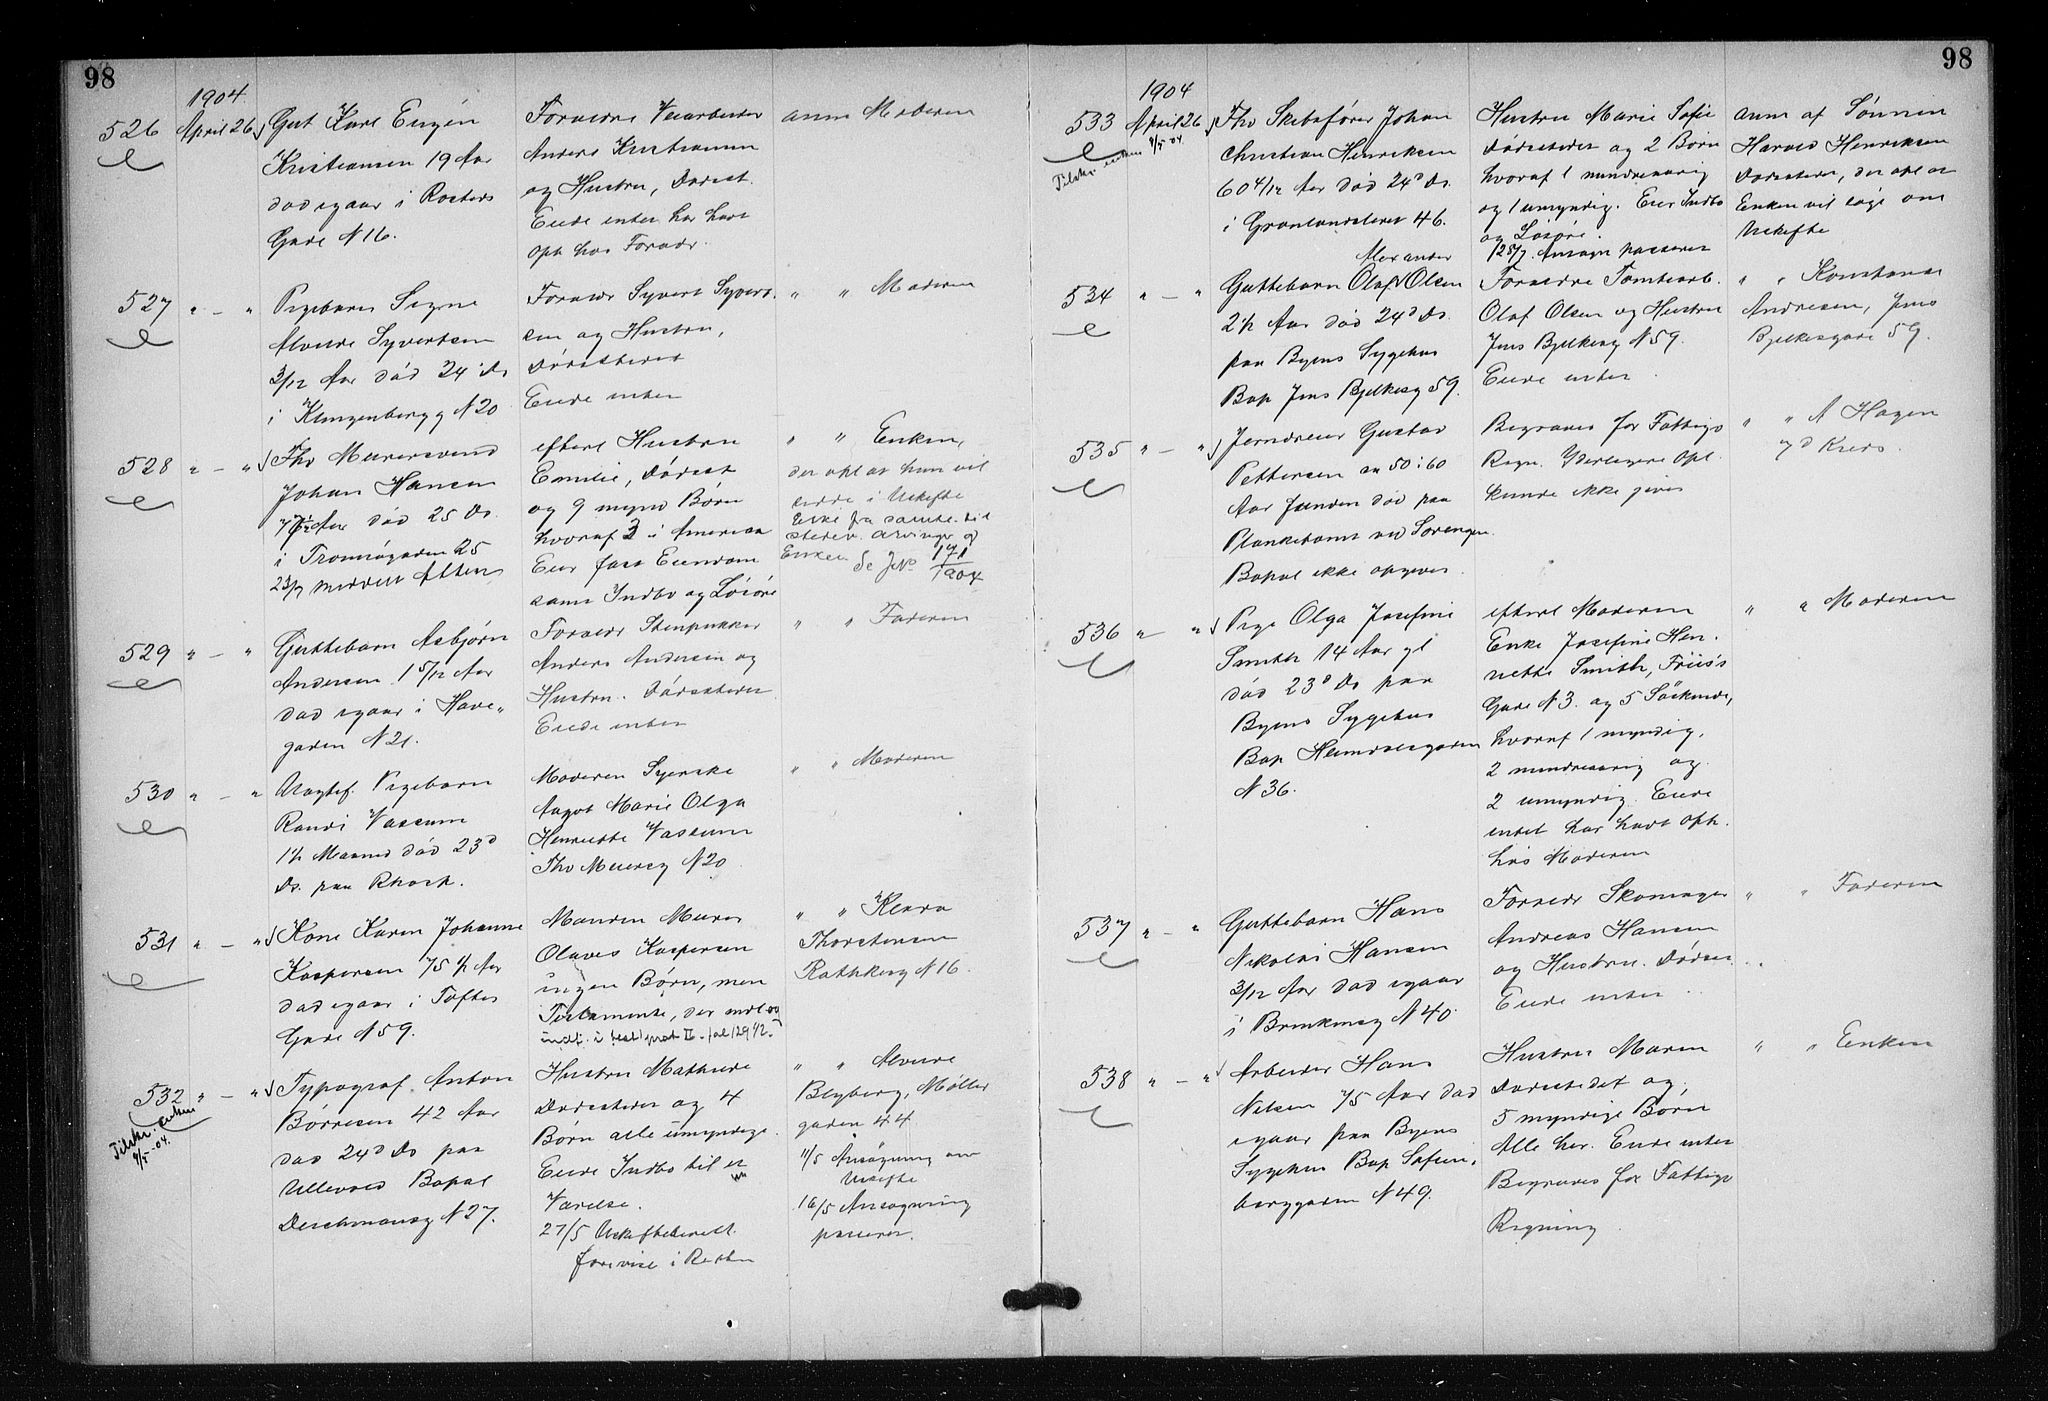 98
1904
526 April 26 Gut Karl Eugén
Kristiansen 19 Aar
død igaar i Rosteds
Gade N 16.
Forældre Veiarbeider
Anders Kristiansen
og Hustru, Dødsst.
Eiede intet har havt
Oph hos Forældr.
anm Moderen
527 " — " Pigebarn Signe
Alvilde Syvertsen
3/12 Aar død 24' Ds
i Klingenbergg N 20
Forældr Syvert Syvert-
sen og Hustru,
Dødsstedet
Eiede intet
" " Moderen
528 " — " Fhv Murersvend
Johan Hansen
Aar død 25 Ds.
i Tromsøgaden 25
23/7 meddelt Attest
efterl Hustru
Emilie, Dødsst
og 9 mynd Børn
hvoraf 3 i Amerika
Eier fast Eiendom
samt Indbo og Løsøre
" " Enken,
der opl at hun vil
sidde i Uskifte
Enken Se JNo 171/1904
529 " — " Guttebarn Asbjørn
Andersen 1 5/12 Aar
død igaar i Have-
gaden N 21.
Forældr Stenpukker
Anders Andersen og
Hustru. Dødsstedet
Eiede intet
" " Faderen
530 " — " Uægtef. Pigebarn
Randi Vassum
1½ Maaned død 23d
Ds. paa Rhosp.
Moderen Syerske
Aagot Marie Olga
Henriette Vassum
Thv Meyersg N 20
" " Moderen
531 " — " Kone Karen Johanne
Kaspersen 75 ½ Aar
død igaar i Toftes
Gade N 59.
Manden Murer
Olaves Kaspersen
ingen Børn, men
Testamente, der
indf. i test prot II
" " Klara
Thorstensen
Rathkesg N 16.
532 " — " Typograf Anton
Børresen 42 Aar
død 24d Ds paa
Ullevold Bopæl
Deichmansg N 27.
Tilskr. enken
4/5-04.
Hustru Mathilde
Dødsstedet og 4
Børn alle umyndige
Eiede Indbo til et
Værelse.
27/5 Uskiftebevill.
forevist i Retten
" " Alvilde
Blyberg, Møller
gaden 44
11/5 Ansøgning om
Uskifte
16/5 Ansøgning
passeret.
98
1904
533 April 26 Fhv Skibsfører Johan
Christian Henriksen
60 4/12 Aar død 24d Ds.
i Grønlandsleret 46.
Tilskr. enken 4/5 04.
Hustru Marie Sofie
Dødsstedet og 2 Børn
hvoraf 1 mindreaarig
og 1 umyndig. Eier Indbo
og Løsøre.
Ansøgn passeret
anm af Sønnen
Harald Henriksen
Dødsstedet, der opl at
Enken vil søge om
Uskifte
534 " — " Guttebarn Olaf Alexander Olsen
2½ Aar død 24d Ds.
paa Byens Sygehus
Bop Jens Bjelkesg 59.
Forældre Tomtearb.
Olaf Olsen og Hustru
Jens Bjelkesg N 59.
Eiede intet
" " Konstanse
Andresen, Jens
Bjelkesgade 59.
535 " — " Jerndreier Gustav
Pettersen ca 50 i 60
Aar funden død paa
Planketomt ved Sørengen.
Bopæl ikke opgivet
Begraves for Fattigv
Regn. Yderligere Opl.
kunde ikke gives
" " A Hagen
7d Kreds.
536 " — " Pige Olga Josefine
Smith 14 Aar gl
død 23d Ds paa
Byens Sygehus
Bop Heimdalsgaden
N 36.
efterl Moderen
Enke Josefine Hen-
riette Smith, Friis's
Gade N 3. og 5 Søskende,
hvoraf 1 myndig,
2 mindreaarig og
2 umyndig. Eiede
intet har havt Oph.
hos Moderen
" " Moderen
537 " — " Guttebarn Hans
Nikolai Hansen
3/12 Aar død igaar
i Brinkensg N 40.
Forældr Skomager
Andreas Hansen
og Hustru. Dødsst.
Eiede intet.
" " Faderen
538 " — " Arbeider Hans
Nilsen 75 Aar død
igaar paa Byens
Sygehus Bop Sofien-
berggaden N 49.
Hustru Maren
Dødsstedet og
5 myndige Børn
Alle her. Eiede intet
Begraves for Fattigv
Regning
" " Enken